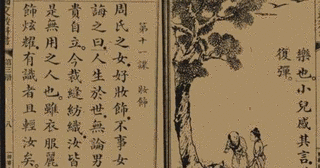 樂也。小兒感其言。
復彈。
第十一課 妝飾
周氏之女。好妝飾。不事女
誨之曰。人生於世。無論男
貴自立。今裁縫紡織。汝皆
是無用之人也。雖衣服麗
飾炫耀。有識者且輕汝矣。
八